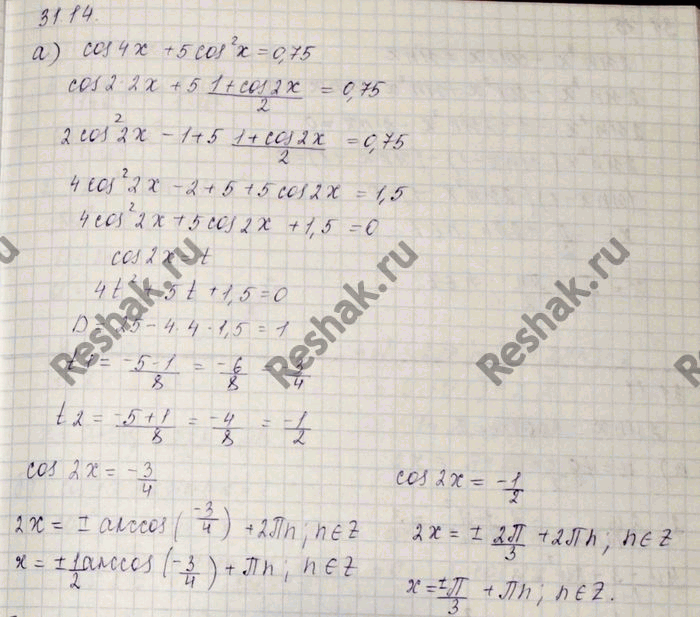 31.14.
а) cos4x + 5cos²x = 0,75
cos2·2x + 5 (1+cos2x)/2 = 0,75
2cos²2x - 1 + 5 (1+cos2x)/2 = 0,75
4cos²2x - 2 + 5 + 5cos2x = 1,5
4cos²2x + 5cos2x + 1,5 = 0
cos2x = t
4t² + 5t + 1,5 = 0
D = 25 - 4·4·1,5 = 1
t1 = (-5-1)/8 = -6/8 = -3/4
t2 = (-5+1)/8 = -4/8 = -1/2
cos 2x = -3/4
2x = ± arccos(-3/4) + 2Пn; n∈Z
x = ±1/2 arccos(-3/4) + Пn; n∈Z
cos2x = -1/2
2x = ± 2П/3 + 2Пn; n∈Z
x = ±П/3 + Пn; n∈Z.
Reshak.ru
Reshak.ru
Reshak.ru